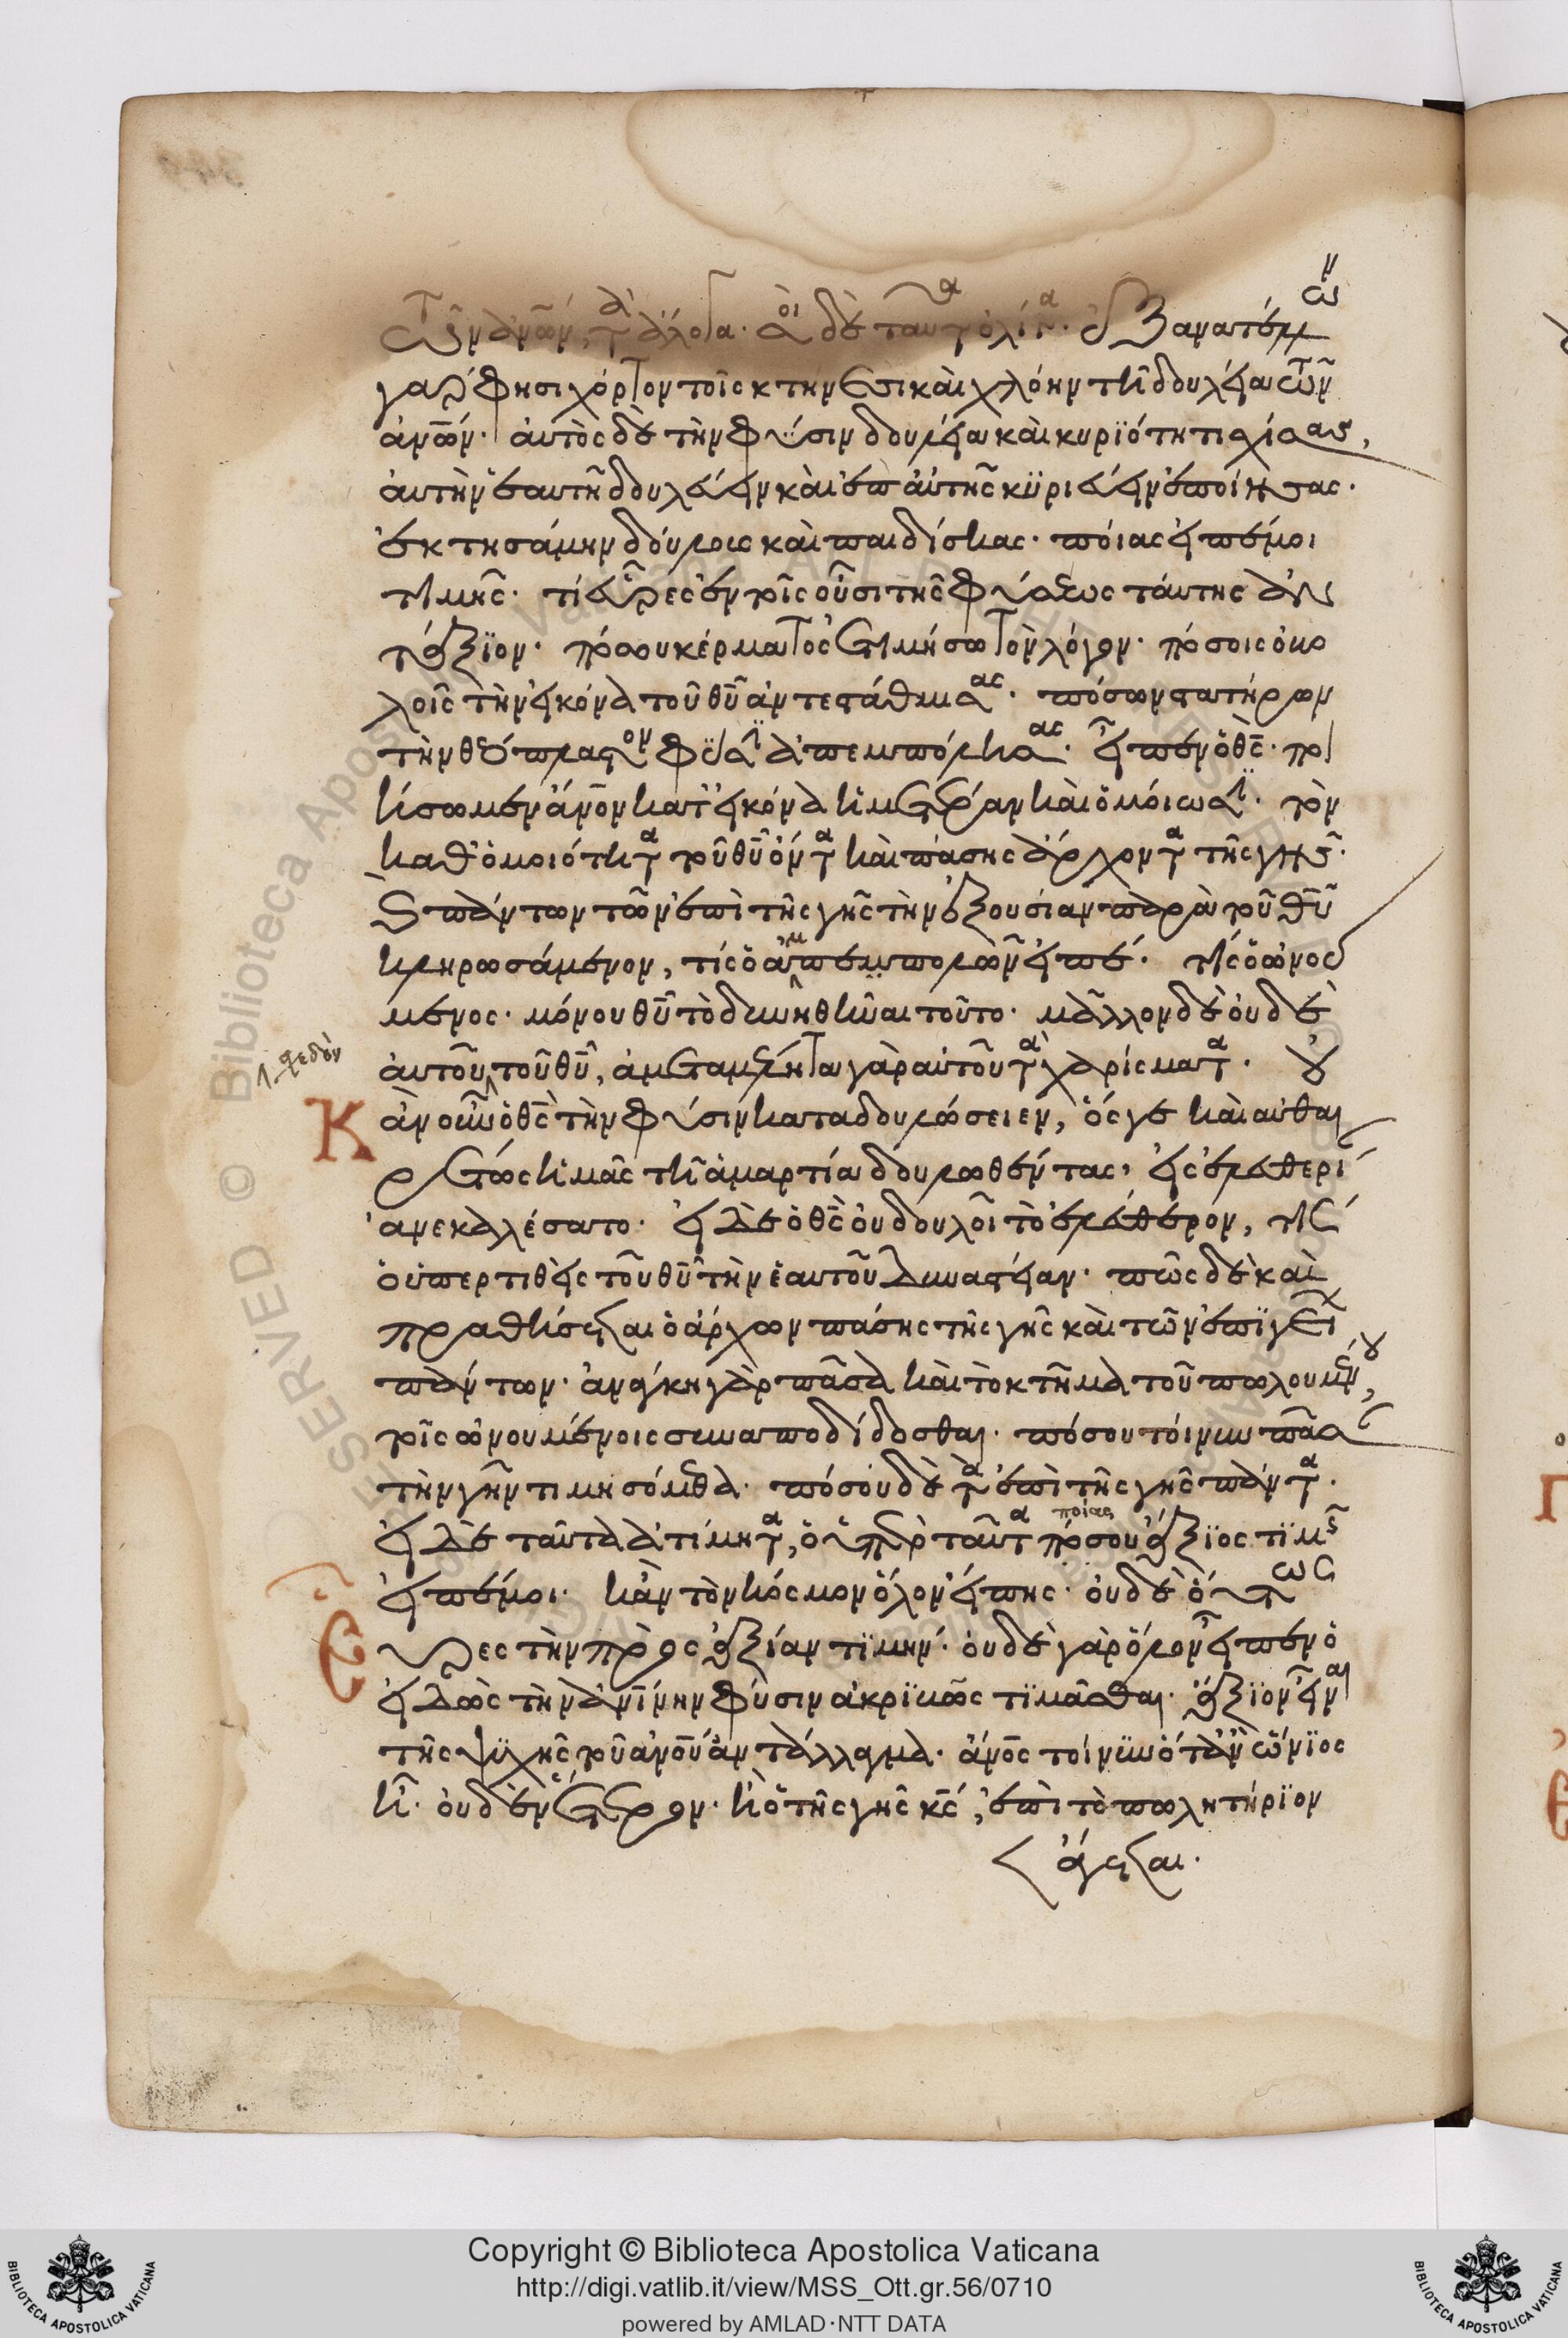 τῶν ἀνων, τὰ ἄλογα. ἐξανατέλλων
γὰρ φησι χόρτον τοῖς κτήνεσι καὶ χλόην τῆ δουλεία τῶν
ἀνων. αὐτὸς δὲ τὴν φύσιν δουλεία καὶ κυριότητι σχίσας,
αὐτὴν ἑαυτῆ δουλεύειν καὶ ἐπ' αὐτῆς κυριεύειν ἐποίησας.
ἐκτησάμην δούλους καὶ παιδίσκας. ποίας εἰπέ μοι
τιμῆς. τί εὗρες ἐν τοῖς οὖσι τῆς φύσεως ταύτης ἀν
τάξιον. πόσου κέρματος ἐτιμήσω τὸν λόγον. πόσοις ὀβο
λοῖς τὴν εἰκόνα τοῦ θυ ἀντεστάθμισας. πόσων στατήρων
τὴν θεόπλαστον φύσιν ἀπεμπόλησας. εἶπεν ὁ θς. ποι
ήσωμεν ἄνον κατ' εἰκόνα ἡμετέραν καὶ ὁμοίωσιν. τὸν
καθ' ὁμοιότητα τοῦ θυ ὄντα καὶ πάσης ἄρχοντα τῆς γῆς.
καὶ πάντων τῶν ἐπὶ τῆς γῆς τὴν ἐξουσίαν παρὰ τοῦ θυ
κληρωσάμενον, τίς ὁ ἀπεμπολῶν εἰπέ. τίς ὁ ὠνού
μενος. μόνου θυ τὸ δυνηθῆναι τοῦτο. μᾶλλον δὲ οὐδὲ
αὐτοῦ τοῦ θυ, ἀμεταμέλητα γὰρ αὐτοῦ τὰ χαρίσματα. οὐ
κ ἂν οὖν ὁ θς τὴν φύσιν καταδουλώσειεν, ὅς γε καὶ αὐθαι
ρέτως ἡμᾶς τῆ ἁμαρτία δουλωθέντας, εἰς ἐλευθερί
αν ἐκαλέσατο. εἰ δὲ ὁ θς οὐ δουλοῖ τὸ ἐλεύθερον, τίς
ὁ ὑπερτιθεὶς τοῦ θυ τὴν ἑαυτοῦ δυναστείαν. πῶς δὲ καὶ
πραθήσεται ὁ ἄρχων πάσης τῆς γῆς καὶ τῶν ἐπιγείων
πάντων. ἀνάγκη γὰρ πᾶσα καὶ τὸ κτῆμα τοῦ πωλουμένου,
τοῖς ὠνουμένοις συναποδίδοσθαι. πόσου τοίνυν πᾶσαν
τὴν γῆν τιμησόμεθα. πόσου δὲ τὰ ἐπὶ τῆς γῆς πάντα.
εἰ δὲ ταῦτα ἀτίμητα, ὁ ὑπὲρ ταῦτα πόσου ποίας ἄξιος τιμῆς
εἰπέ μοι. κἂν τὸν κόσμον ὅλον εἴπης. οὐδὲ οὕτως
εὗρες τὴν πρὸς ἀξίαν τιμήν. οὐδὲ γὰρ ὅλον εἶπεν ὁ
εἰδὼς τὴν ἀνίνην φύσιν ἀκριβῶς τιμᾶσθαι. ἄξιον εἶναι
τῆς ψυχῆς τοῦ ἀνου ἀντάλλαγμα. ἄνος τοίνυν ὅταν ὤνιος
ᾖ. οὐδὲν ἕτερον. ἢ ὁ τῆς γῆς κς, ἐπὶ τὸ πωλητήριον
ἄγεται.